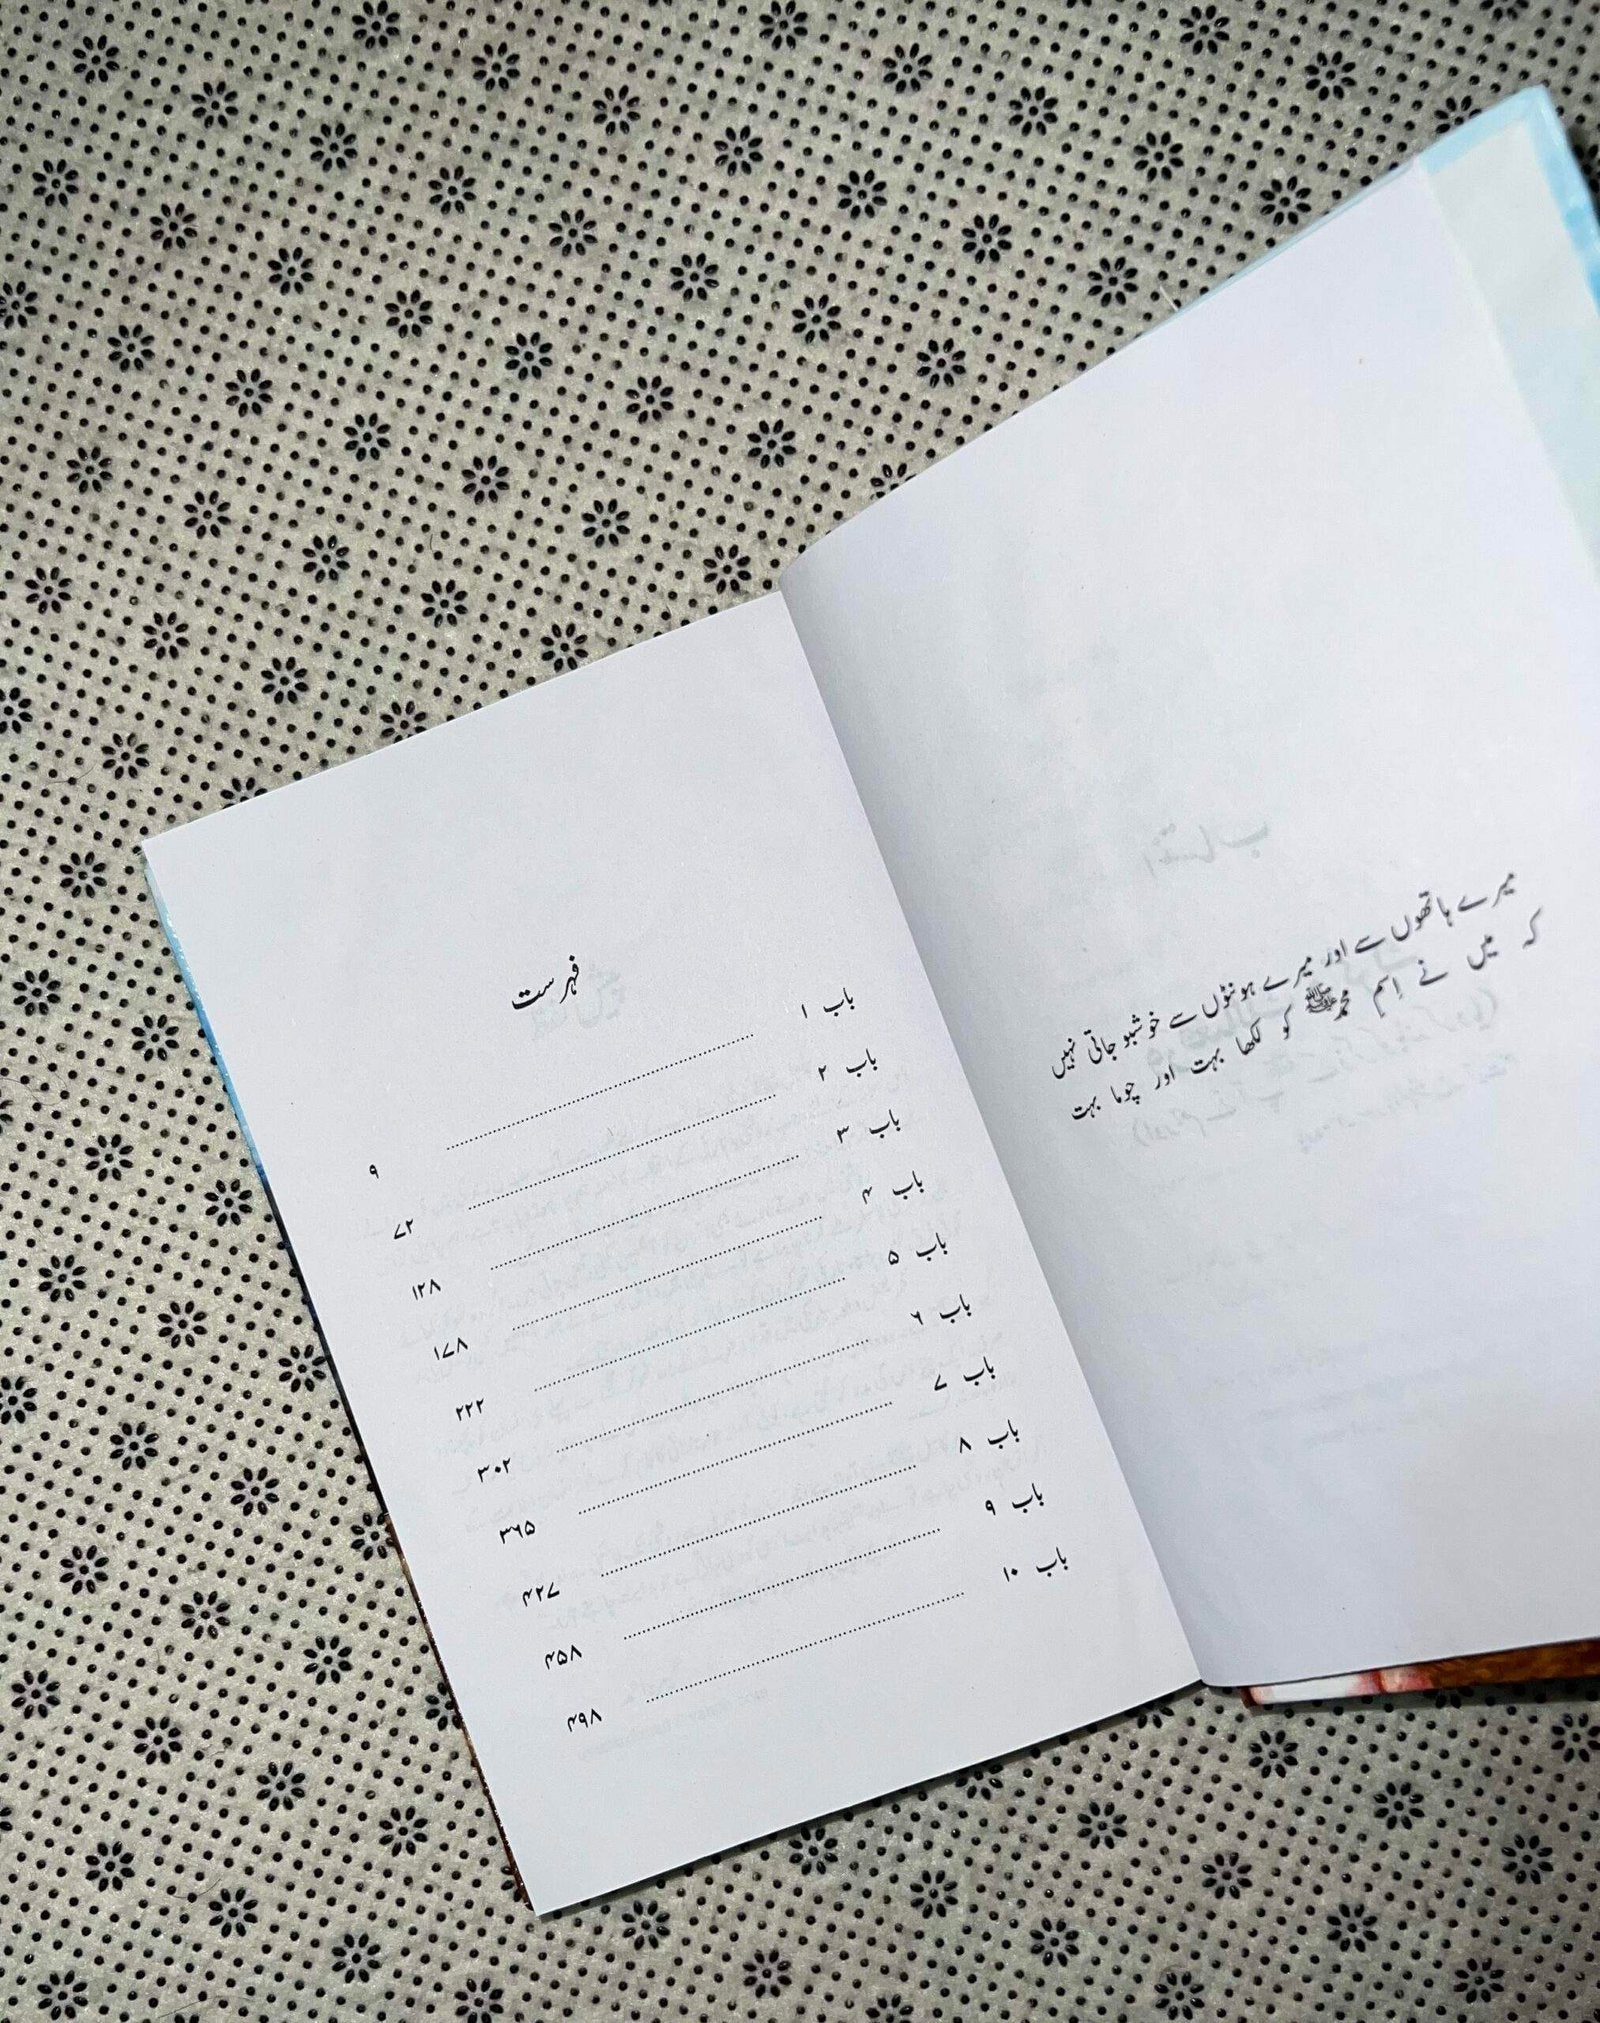 میرے ہاتھوں سے اور میرے ہونٹوں سے خوشبو جاتی نہیں
کہ میں نے اِسمِ محمدﷺ کو لکھا بہت اور چوما بہت
فہرست
باب ۱ ........................ ۹
باب ۲ ........................ ۷۲
باب ۳ ........................ ۱۲۸
باب ۴ ........................ ۱۷۸
باب ۵ ........................ ۲۲۲
باب ۶ ........................ ۳۰۲
باب ۷ ........................ ۳۶۵
باب ۸ ........................ ۴۲۷
باب ۹ ........................ ۴۵۸
باب ۱۰ ........................ ۴۹۸